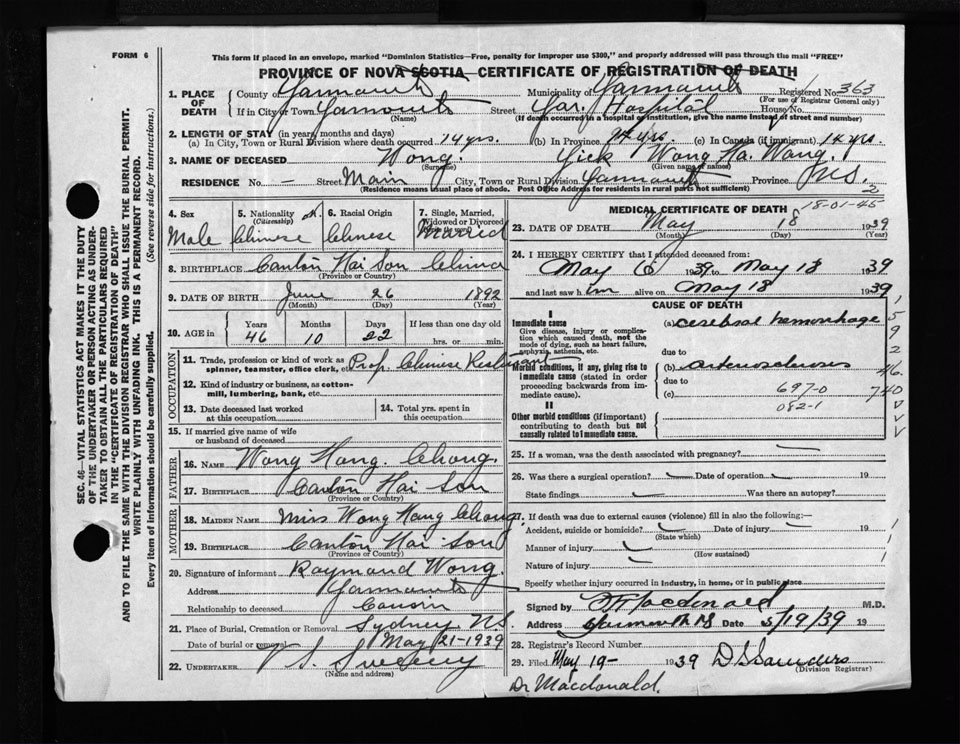 FORM 6
This form if placed in an envelope, marked "Dominion Statistics—Free, penalty for improper use $300," and properly addressed will pass through the mail "FREE"
PROVINCE OF NOVA SCOTIA CERTIFICATE OF REGISTRATION OF DEATH
1. PLACE OF DEATH County of Yarmouth Municipality of Yarmouth Registered No. 363
(For use of Registrar General only)
If in City or Town Yarmouth Street Yar. Hospital House No.
(Name) (If death occurred in a hospital or institution, give the name instead of street and number)
2. LENGTH OF STAY (in years, months and days)
(a) In City, Town or Rural Division where death occurred 14 yrs. (b) In Province 14 yrs. (c) In Canada (if immigrant) 14 yrs.
3. NAME OF DECEASED Wong. Yick Wong Ha. Wang.
(Surname) (Given name or names)
RESIDENCE No. — Street Main City, Town or Rural Division Yarmouth Province N.S.
(Residence means usual place of abode. Post Office Address for residents in rural parts not sufficient)
2
4. Sex Male
5. Nationality (Citizenship) Chinese
6. Racial Origin Chinese
7. Single, Married, Widowed or Divorced Married
8. BIRTHPLACE Canton Hai Son China
(Province or Country)
9. DATE OF BIRTH June 26 1892
(Month) (Day) (Year)
10. AGE in Years Months Days If less than one day old
46 10 22 hrs. or min.
OCCUPATION
11. Trade, profession or kind of work as spinner, teamster, office clerk, etc. Prop. Chinese Restaurant
12. Kind of industry or business, as cotton-mill, lumbering, bank, etc.
13. Date deceased last worked at this occupation
14. Total yrs. spent in this occupation
15. If married give name of wife or husband of deceased
FATHER
16. NAME Wong Hang Chong
17. BIRTHPLACE Canton Hai Son
(Province or Country)
MOTHER
18. MAIDEN NAME Miss Wong Hang Chong.
19. BIRTHPLACE Canton Hai Son
(Province or Country)
20. Signature of informant Raymond Wong.
Address Yarmouth
Relationship to deceased Cousin
21. Place of Burial, Cremation or Removal Sydney N.S.
Date of burial or removal May 21-1939
22. UNDERTAKER V S. Sweeny
(Name and address)
MEDICAL CERTIFICATE OF DEATH
18-01-45
23. DATE OF DEATH May 18 1939
(Month) (Day) (Year)
24. I HEREBY CERTIFY that I attended deceased from:
May 6 1939 to May 18 1939
and last saw him alive on May 18 1939
CAUSE OF DEATH
I
Immediate cause
Give disease, injury or complication which caused death, not the mode of dying, such as heart failure, asphyxia, asthenia, etc.
(a) cerebral hemorrhage
due to
Morbid conditions, if any, giving rise to immediate cause (stated in order proceeding backwards from immediate cause).
(b) arteriosclerosis
due to
(c) 697-0
082-1
5 9 2 46. 740
II
Other morbid conditions (if important) contributing to death but not causally related to immediate cause.
25. If a woman, was the death associated with pregnancy?
26. Was there a surgical operation? Date of operation 19
State findings Was there an autopsy?
27. If death was due to external causes (violence) fill in also the following:—
Accident, suicide or homicide? Date of injury 19
(State which)
Manner of injury
(How sustained)
Nature of injury
Specify whether injury occurred in industry, in home, or in public place
Signed by Macdonald M.D.
Address Yarmouth NS Date 5/19/39 19
28. Registrar's Record Number
29. Filed May 19- 1939 D S Saunders
(Division Registrar)
Dr Macdonald.
SEC. 46—VITAL STATISTICS ACT MAKES IT THE DUTY
OF THE UNDERTAKER OR PERSON ACTING AS UNDER-
TAKER TO OBTAIN ALL THE PARTICULARS REQUIRED
IN THE "CERTIFICATE OF REGISTRATION OF DEATH"
AND TO FILE THE SAME WITH THE DIVISION REGISTRAR WHO SHALL ISSUE THE BURIAL PERMIT.
WRITE PLAINLY WITH UNFADING INK. THIS IS A PERMANENT RECORD.
Every item of information should be carefully supplied. (See reverse side for instructions.)